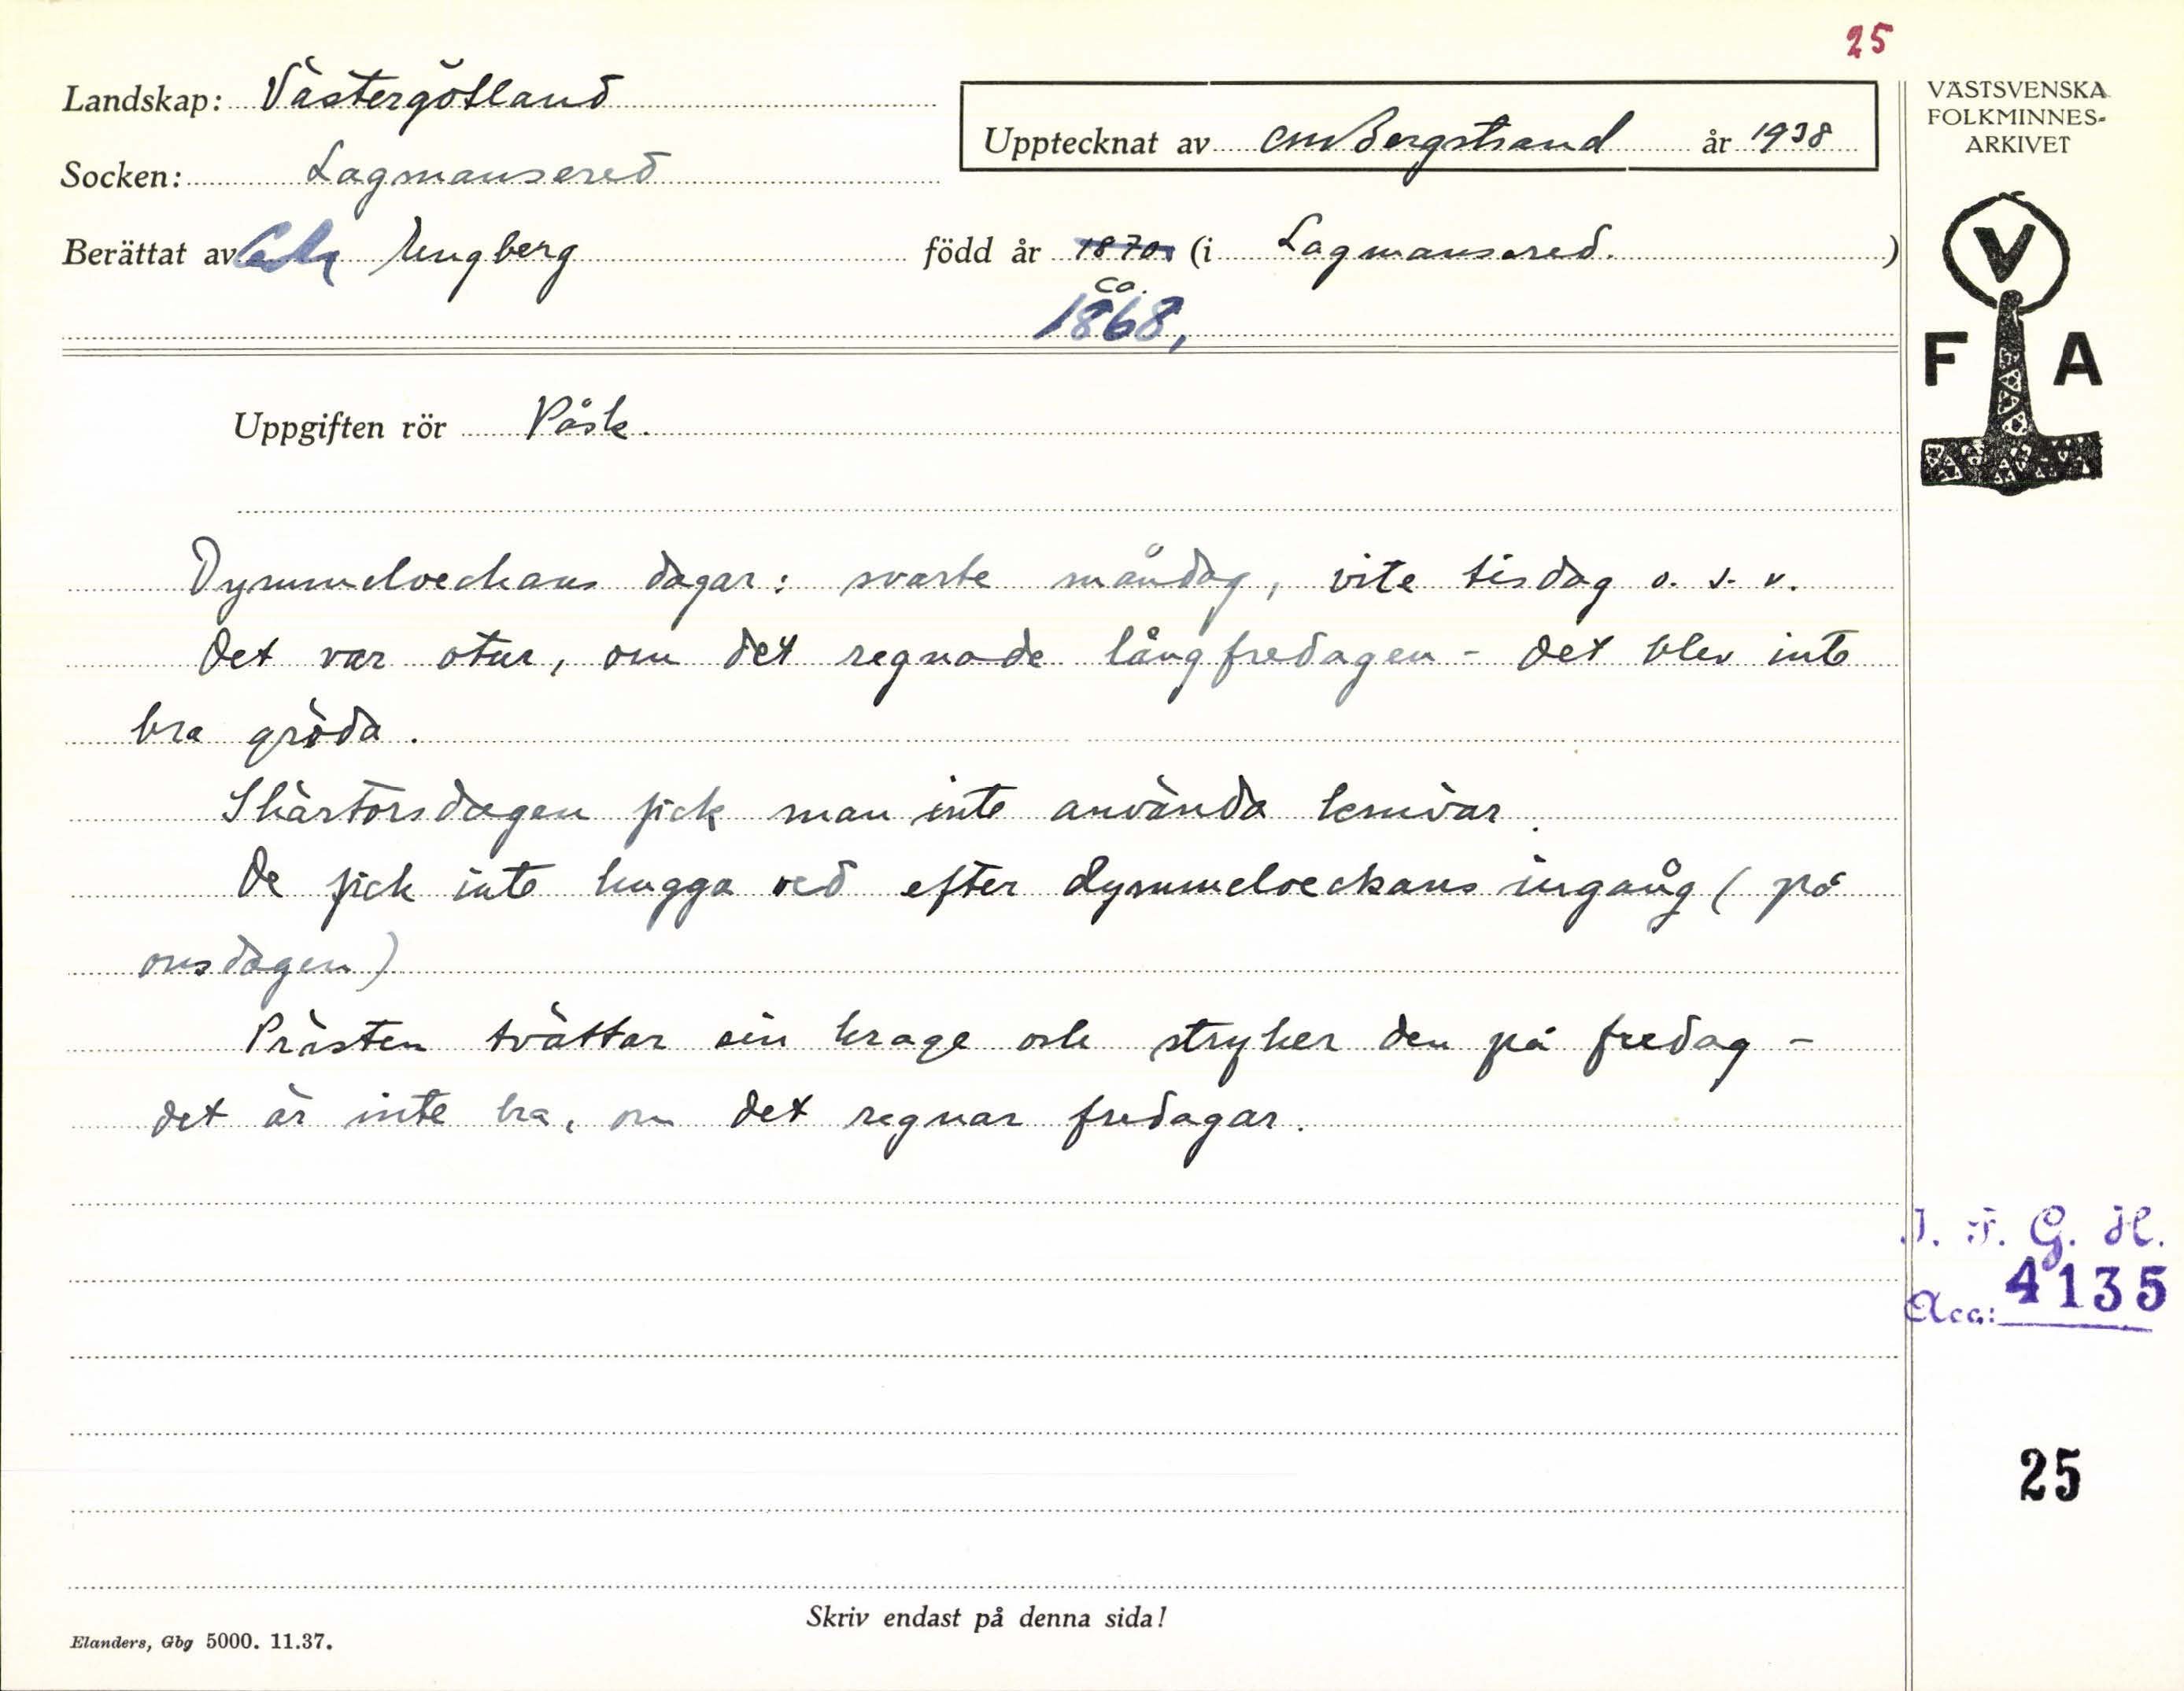 25
Landskap: Västergötland
Upptecknat av CM Bergstrand år 1938
VÄSTSVENSKA
FOLKMINNES-
ARKIVET
Socken: Lagmansered
Berättat av Ungberg född år 1870 (i Lagmansered. )
ca.
1868,
V
F A
Uppgiften rör Påsk.
Dymmelveckans dagar: svarte måndag, vite tisdag o. s. v.
Det var otur, om det regnade långfredagen - det blev inte
bra gröda.
Skärtorsdagen fick man inte använda knivar.
De fick inte hugga ved efter dymmelveckans ingång (på
onsdagen)
Prästen tvättar sin krage och stryker den på fredag -
det är inte bra, om det regnar fredagar.
I. F. G. H.
Acc: 4135
25
Skriv endast på denna sida!
Elanders, Gbg 5000. 11.37.